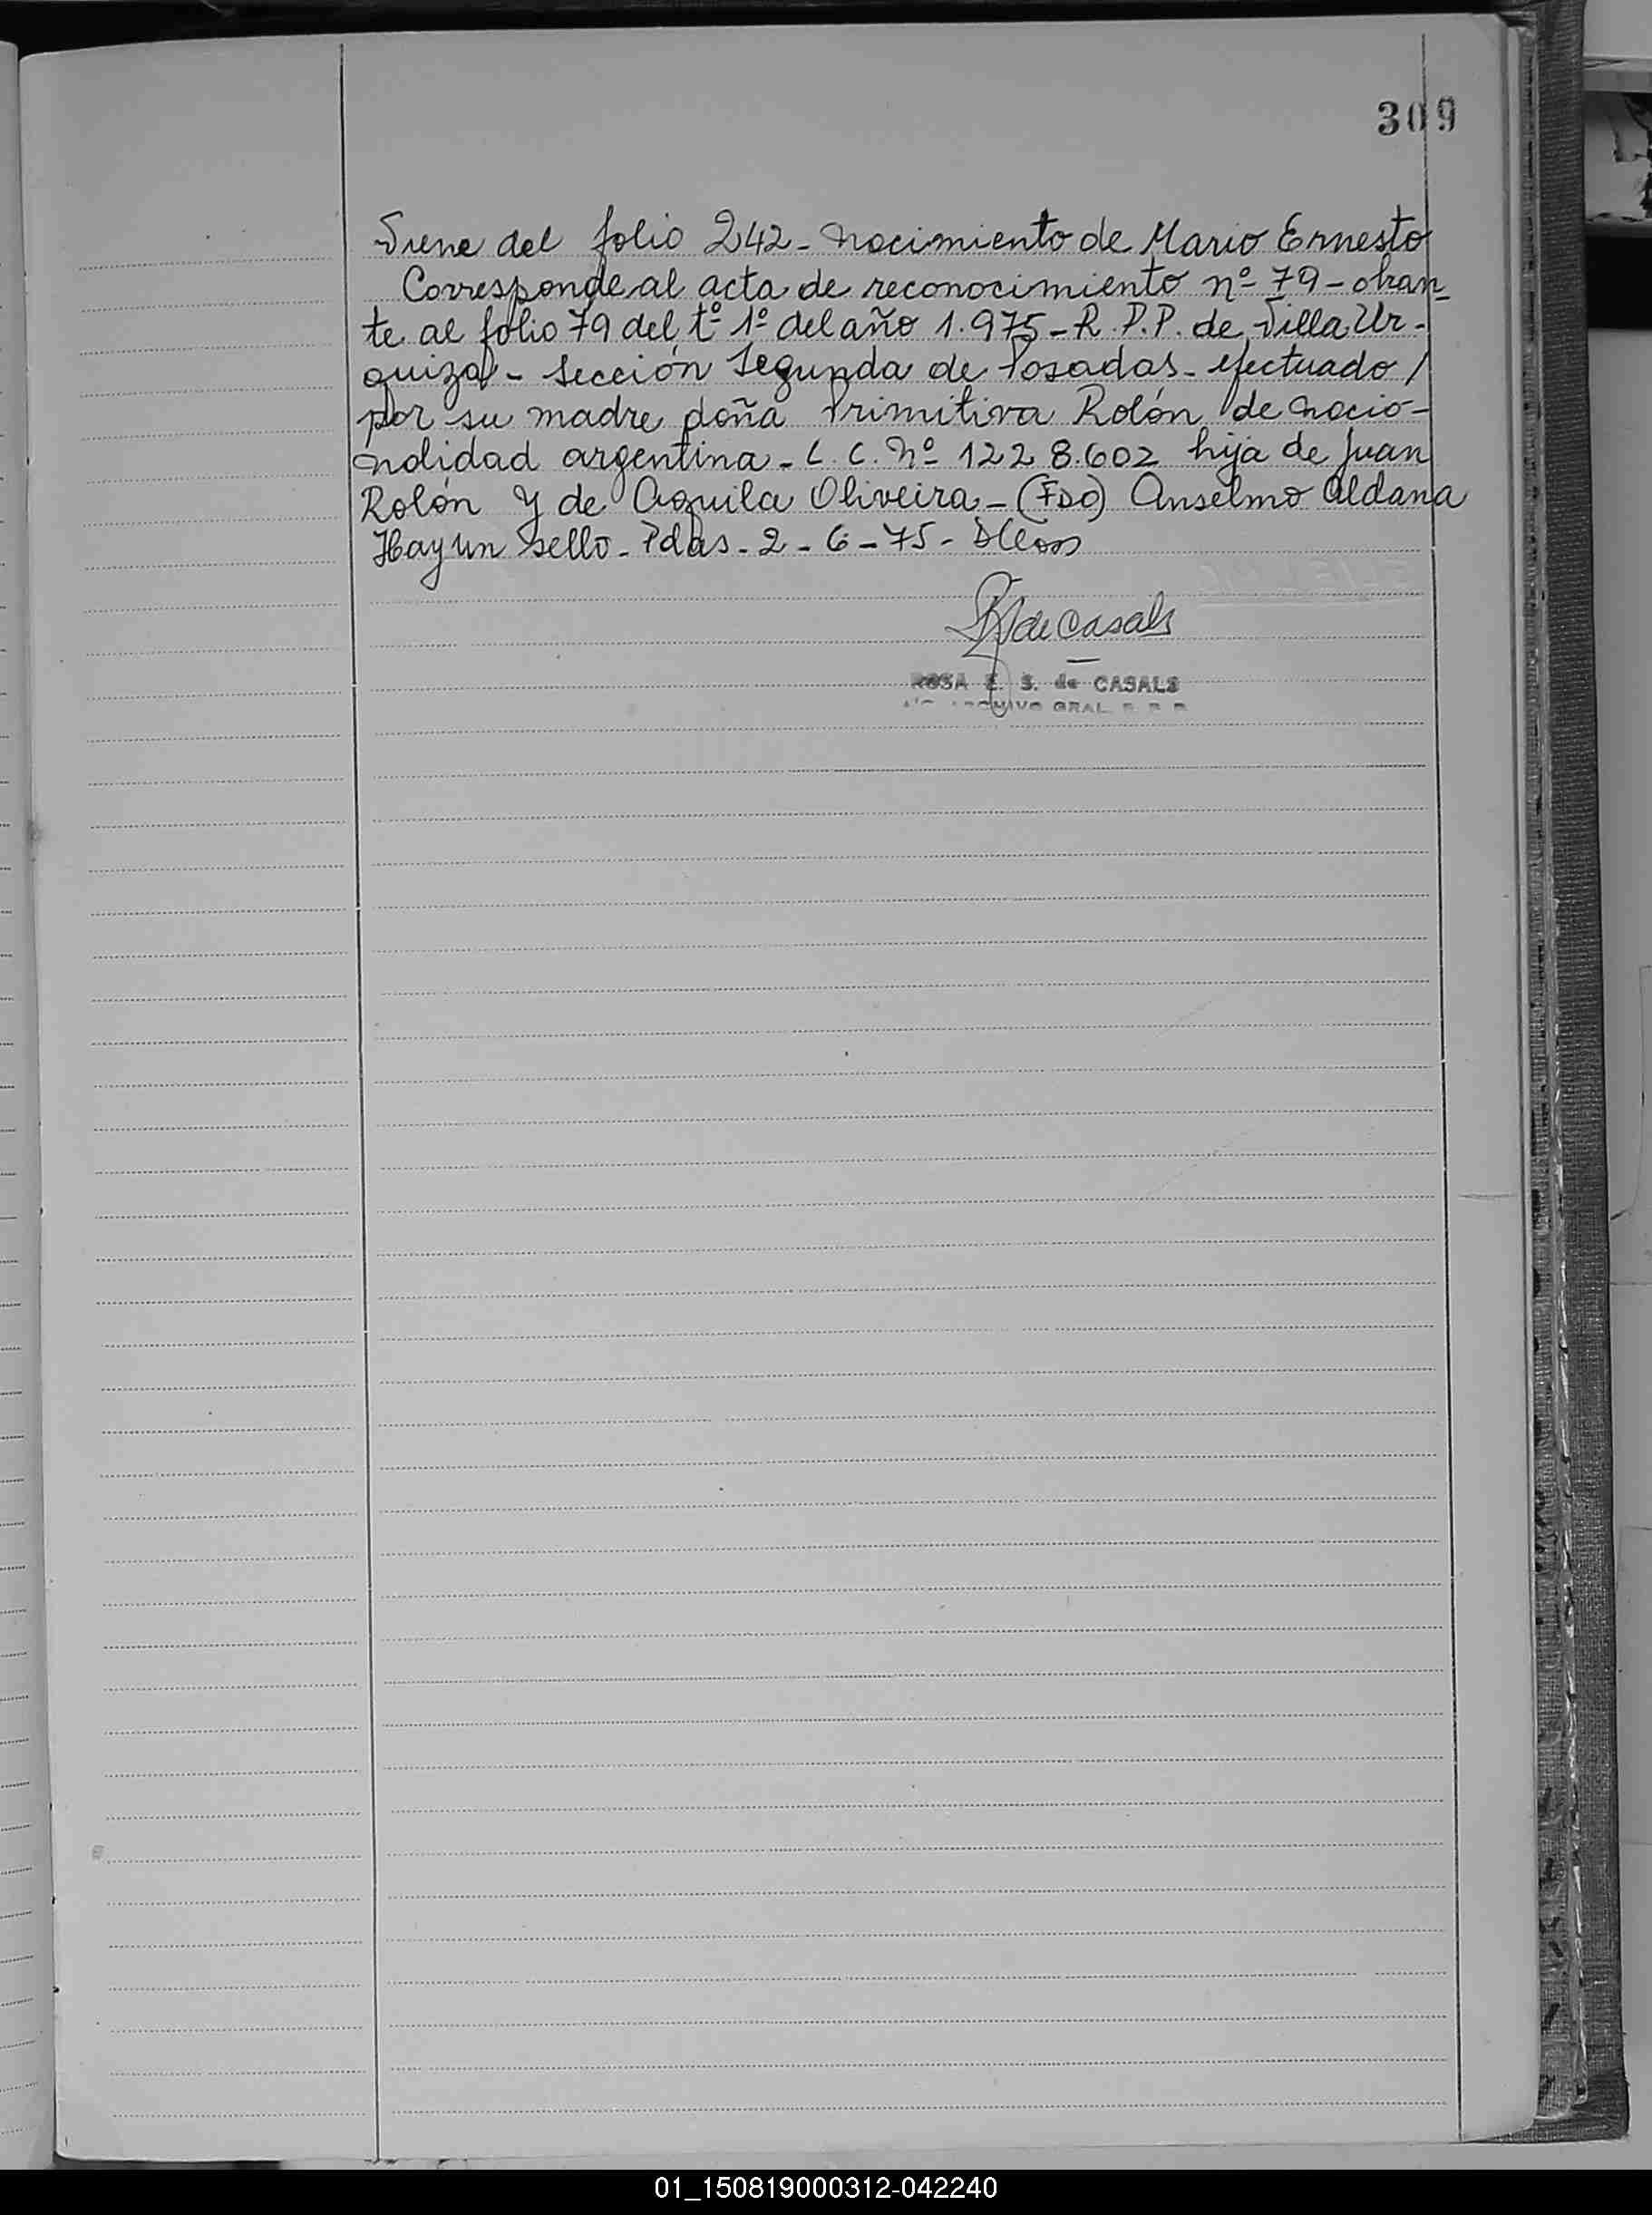 309
Viene del folio 242 - Nacimiento de Mario Ernesto
Corresponde al acta de reconocimiento nº 79 - obran-
te al folio 79 del tº 1º del año 1.975 - R.P.P. de Villa Ur-
quiza - Sección Segunda de Posadas - efectuado /
por su madre doña Primitiva Rolón de nacio-
nalidad argentina - L.C. Nº 1228.602 hija de Juan
Rolón y de Aquila Oliveira - (FDO) Anselmo Aldana
Hay un sello - Pdas - 2 - 6 - 75 -
de Casals
ROSA E. S. de CASALS
ARCHIVO GRAL.
01_150819000312-042240